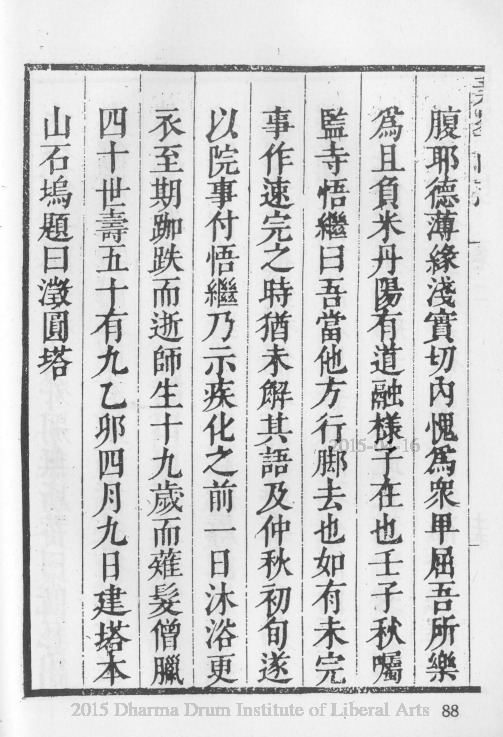 腹耶德薄緣淺實切內愧爲衆甲屈吾所樂
爲且負米丹陽有道融樣子在也壬子秋囑
監寺悟繼曰吾當他方行脚去也如有未完
事作速完之時猶未解其語及仲秋初旬遂
以院事付悟繼乃示疾化之前一日沐浴更
衣至期跏趺而逝師生十九歲而薙髮僧臘
四十世壽五十有九乙卯四月九日建塔本
山石塢題曰澂圓塔
2015 Dharma Drum Institute of Liberal Arts
88